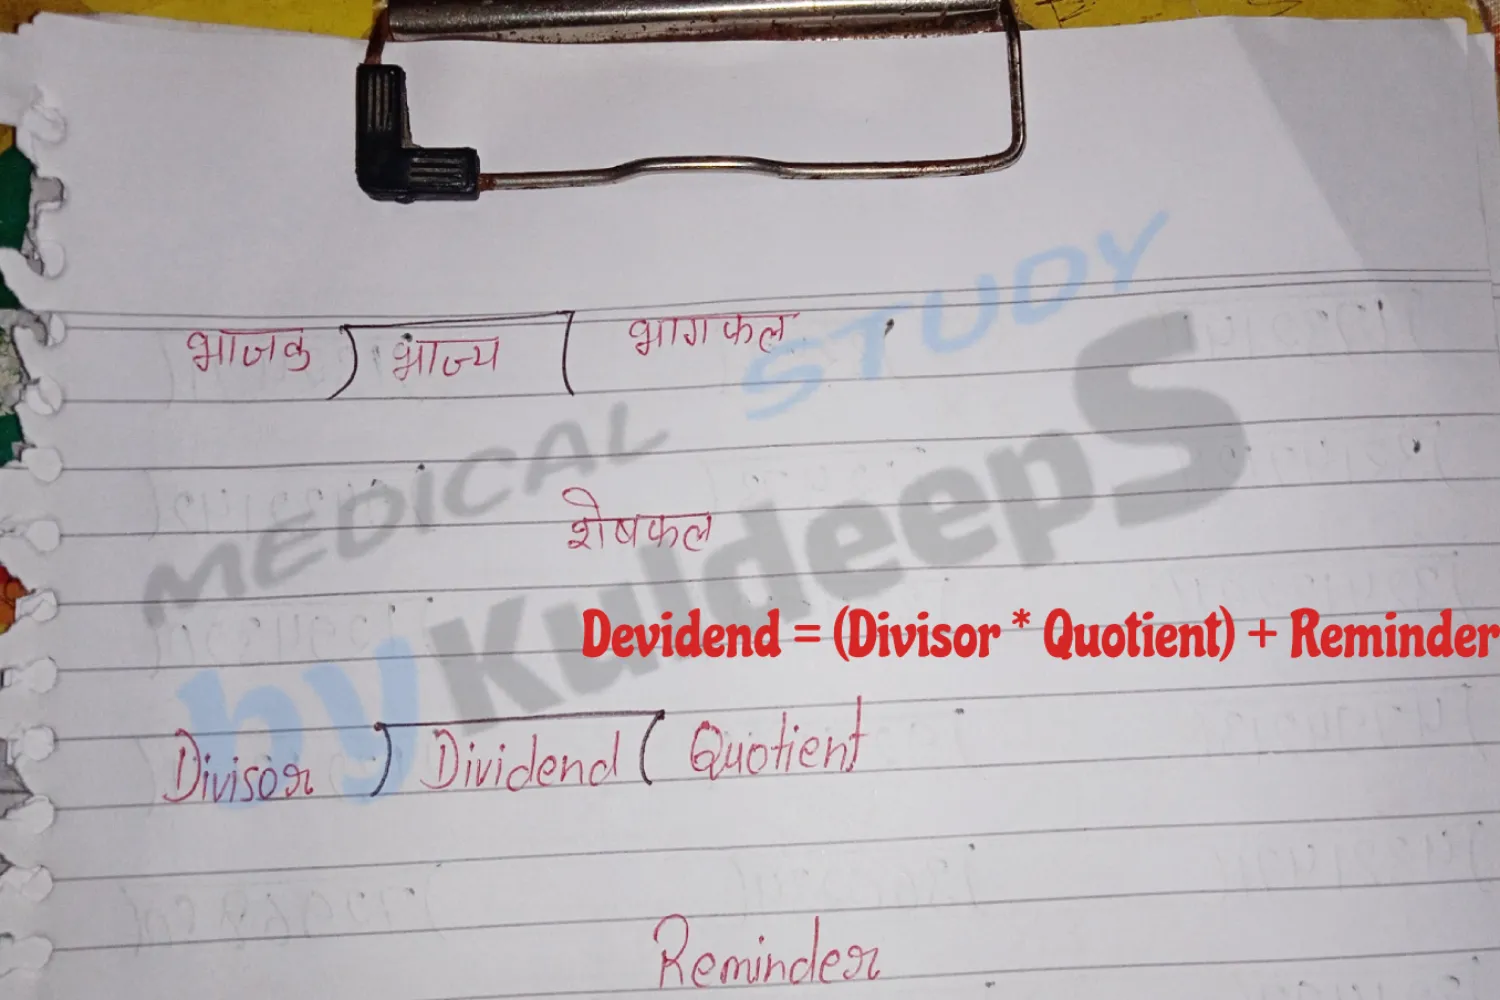 भाजक ) भाज्य ( भागफल
MEDICAL STUDY
शेषफल
by KuldeepS
Devidend = (Divisor * Quotient) + Reminder
Divisor ) Dividend ( Quotient
Reminder